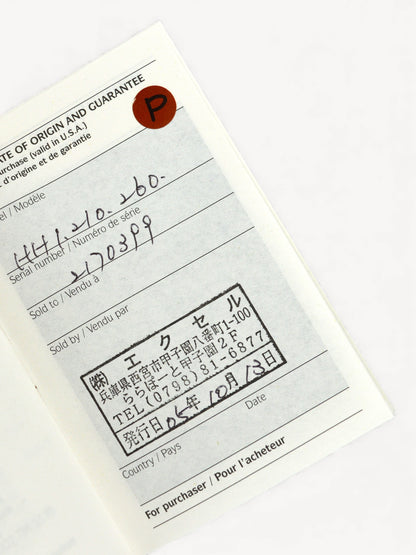 P
ATE OF ORIGIN AND GUARANTEE
urchase (valid in U.S.A.)
t d'origine et de garantie
el / Modèle
HH1.210.260.
Serial number / Numéro de série
2170399
Sold to / Vendu à
Sold by / Vendu par
㈱エクセル
兵庫県西宮市甲子園八番町1-100
ららぽーと甲子園2F
TEL(0798)81-6877
発行日05年10月13日
Date
Country / Pays
For purchaser / Pour l'acheteur